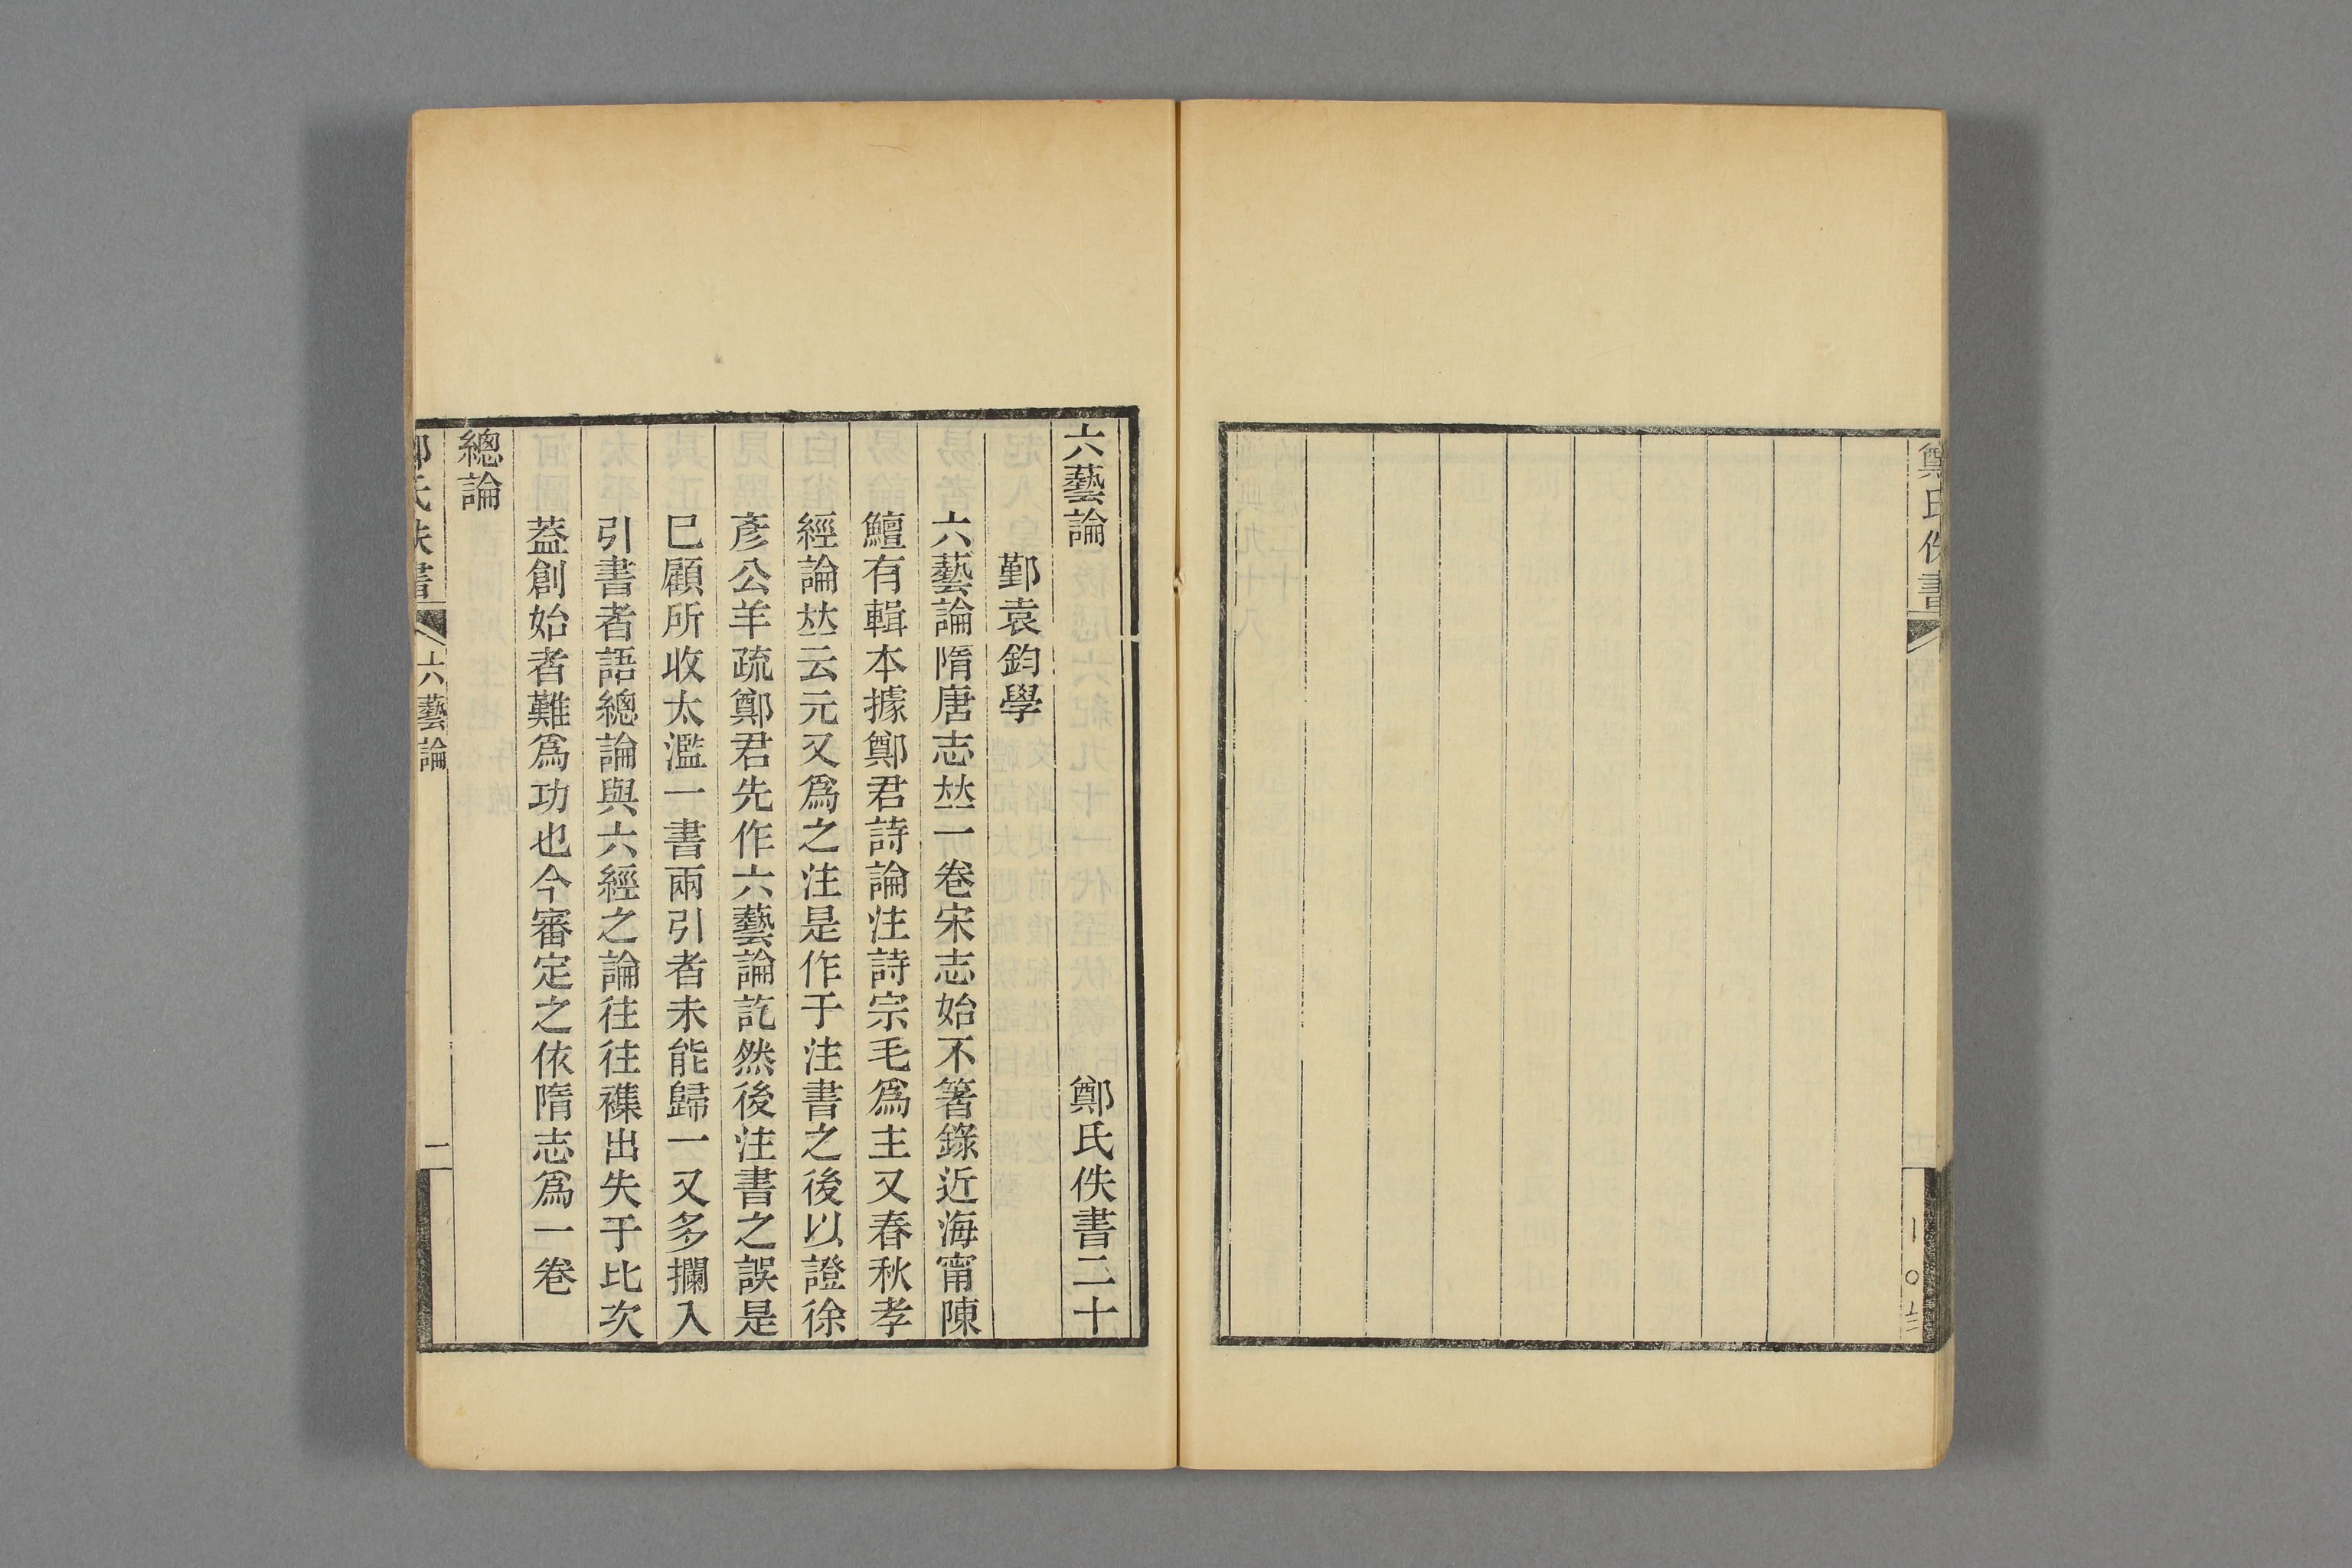 鄭氏佚書
六藝論 鄭氏佚書二十
鄞袁鈞學
六藝論隋唐志竝一卷宋志始不箸錄近海甯陳
鱣有輯本據鄭君詩論注詩宗毛爲主又春秋孝
經論竝云元又爲之注是作于注書之後以證徐
彥公羊疏鄭君先作六藝論訖然後注書之誤是
巳顧所收太濫一書兩引者未能歸一又多攔入
引書者語總論與六經之論往往襍出失于比次
葢創始者難爲功也今審定之依隋志爲一卷
總論
鄭氏佚書 六藝論 一